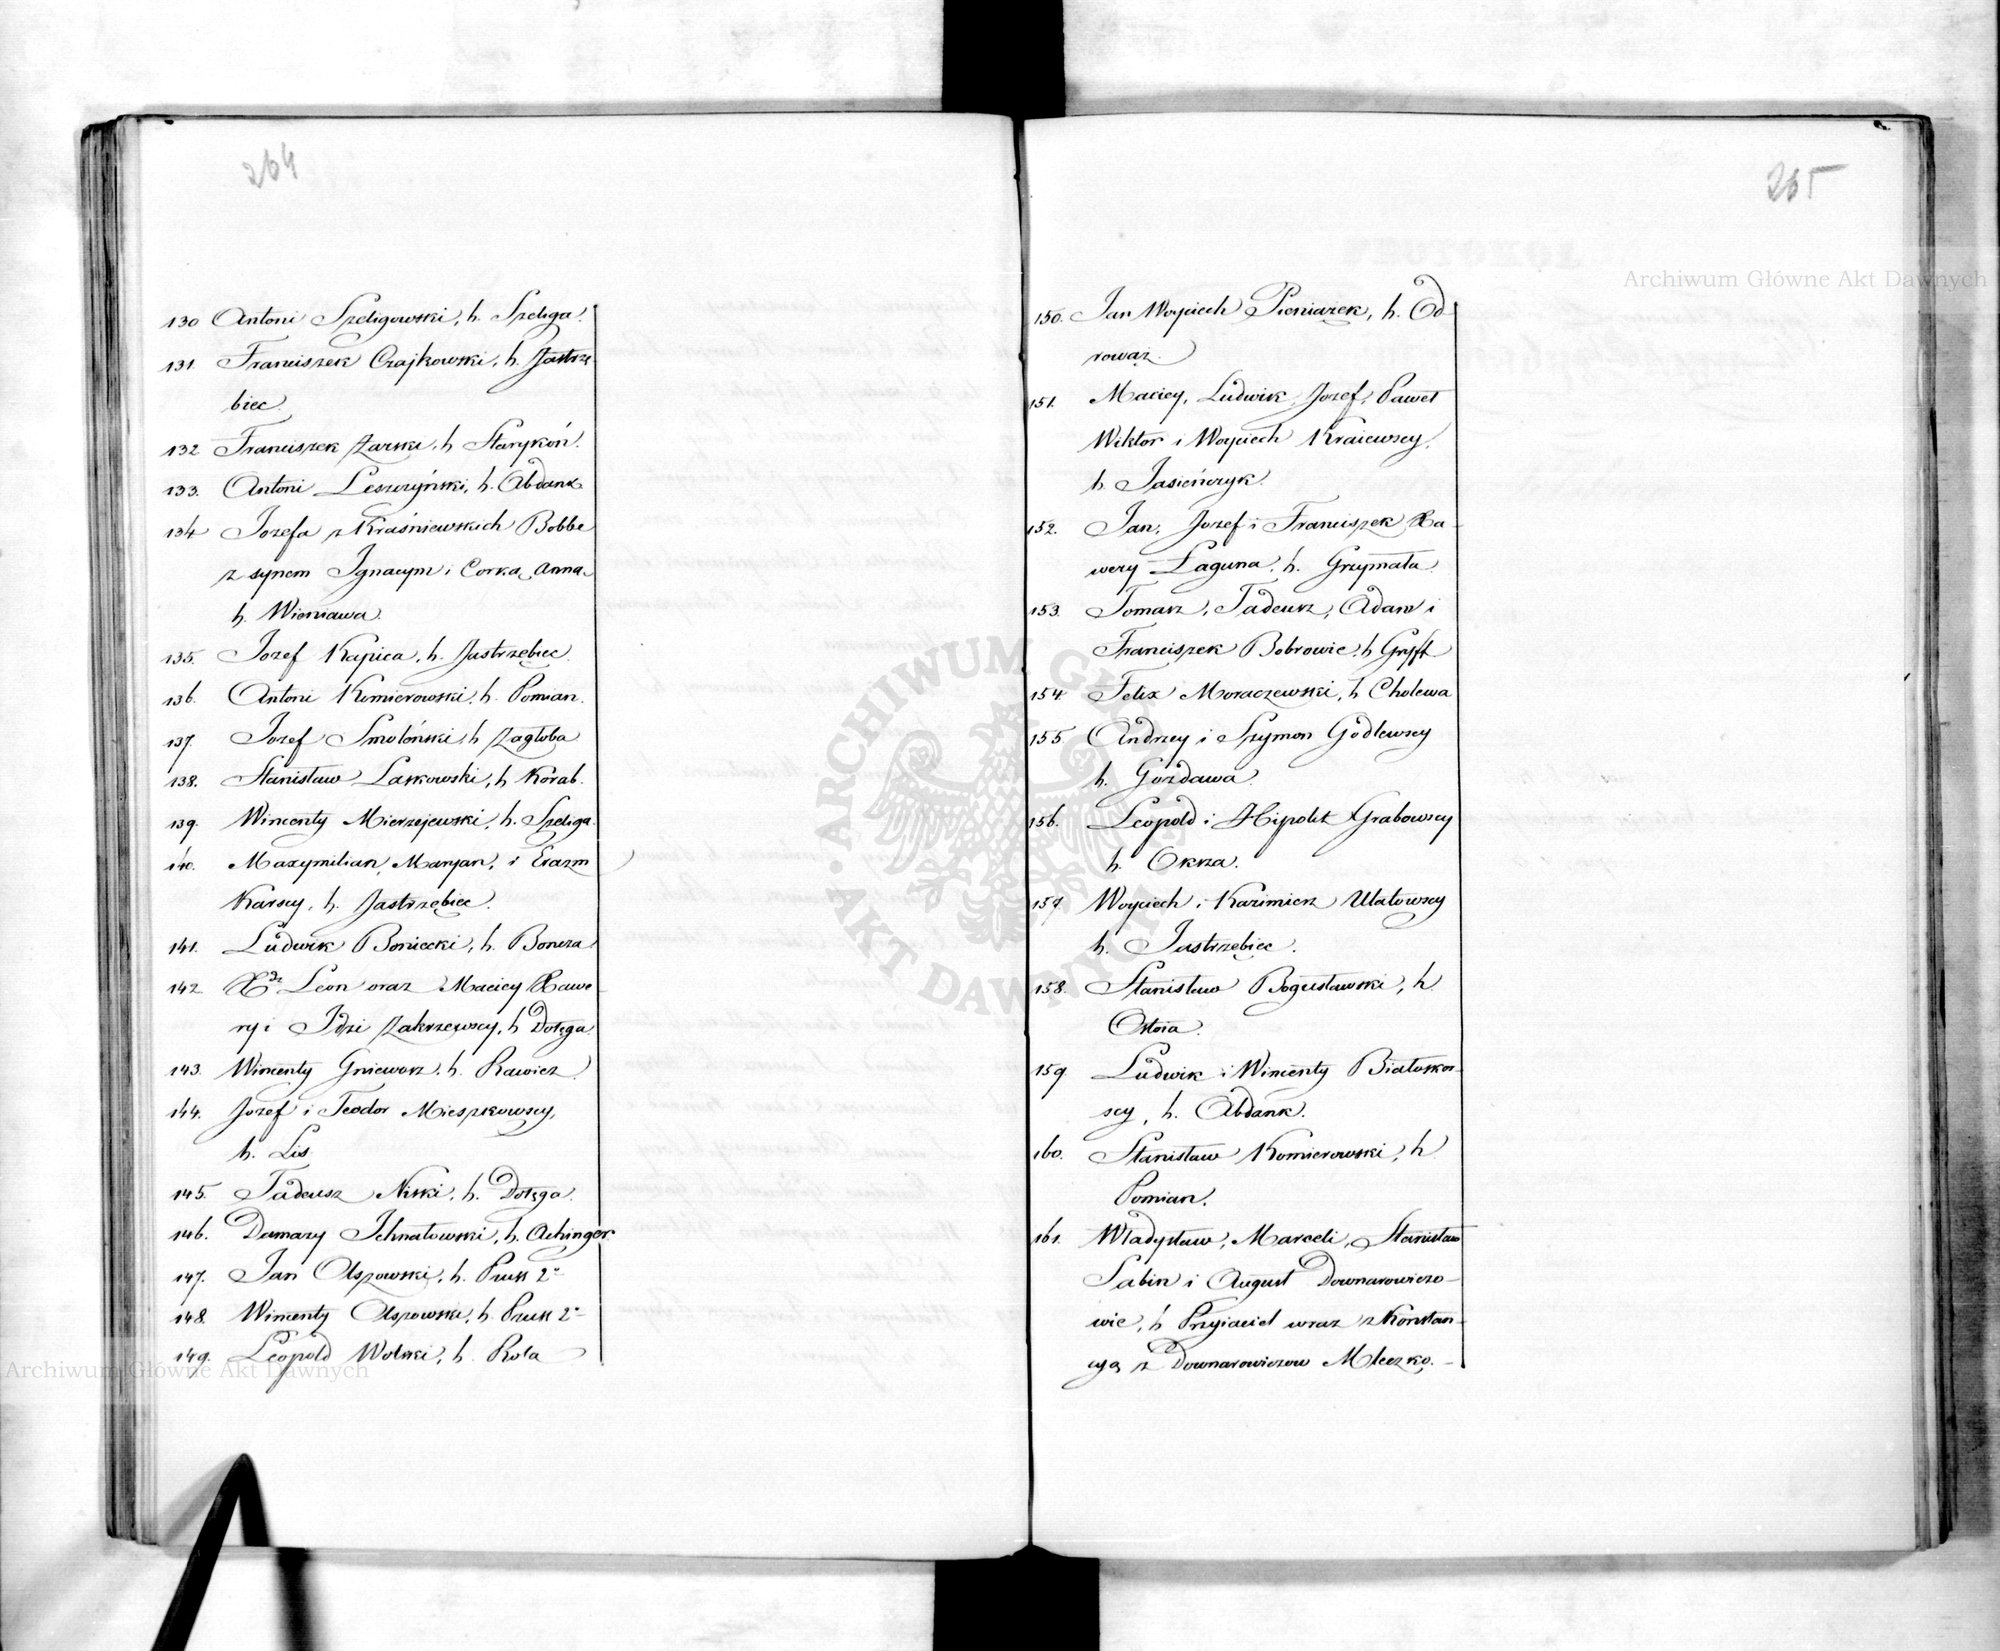 264
130 Antoni Szeligowski, h. Szeliga.
131. Franciszek Czajkowski, h. Jastrzę-
biec.
132 Franciszek Żarski, h Starykoń.
133. Antoni Leszczyński, h. Abdank
134 Jozefa z Kraśniewskich Bobbe
z synem Ignacym i Corką Anną
h. Wieniawa.
135. Jozef Kapica, h. Jastrzębiec.
136. Antoni Komierowski, h. Pomian.
137. Jozef Smoloński, h Zagłoba
138. Stanisław Laskowski, h Korab.
139. Wincenty Mierzejewski, h. Szeliga.
140. Maxymilian, Maryan, i Erazm
Karscy, h. Jastrzębiec.
141. Ludwik Boniecki, h. Boncza.
142. Xdz Leon oraz Maciey Xawe-
ry i Idzi Zakrzewscy, h Dołęga.
143. Wincenty Gniewosz, h. Rawicz.
144. Jozef i Teodor Mieszkowscy,
h. Lis.
145. Tadeusz Niski, h. Dołęga.
146. Damazy Ichnatowski, h. Achinger.
147. Jan Olszowski, h. Pruss 2o
148. Wincenty Olszowski, h. Pruss 2o
149. Leopold Wolski, h. Rola
265
150. Jan Woyciech Pieniażek, h. Od-
rowąż.
151. Maciey, Ludwik, Jozef, Paweł
Wiktor i Woyciech Kraiewscy,
h. Jasieńczyk.
152. Jan, Jozef i Franciszek Xa-
wery Łaguna, h. Grzymała.
153. Tomasz, Tadeusz, Adam i
Franciszek Bobrowie, h Gryff.
154 Felix Moraczewski, h Cholewa
155 Andrzey i Szymon Godlewscy
h. Gozdawa.
156. Leopold i Hipolit Grabowscy
h. Oksza.
157. Woyciech i Kazimierz Ulatowscy
h. Jastrzębiec.
158. Stanisław Bogusławski, h.
Ostoia.
159. Ludwik i Wincenty Białoskor-
scy, h. Abdank.
160. Stanisław Komierowski, h
Pomian.
161. Władysław, Marceli, Stanisław
Sabin i August Downarowiczo-
wie, h Przyiaciel wraz z Konstan-
cyą z Downarowiczow Mleczko.
Archiwum Główne Akt Dawnych
Archiwum Główne Akt Dawnych